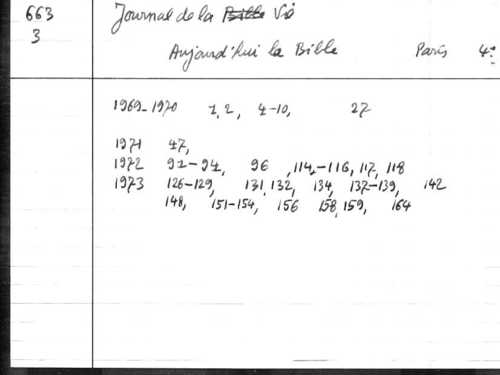 663 Journal de la Bible Vie
3
Aujourd'hui la Bible Paris 4°
1969-1970 1, 2, 4-10, 27
1971 47,
1972 91-94, 96, 114,-116, 117, 118
1973 126-129, 131, 132, 134, 137-139, 142
148, 151-154, 156 158, 159, 164